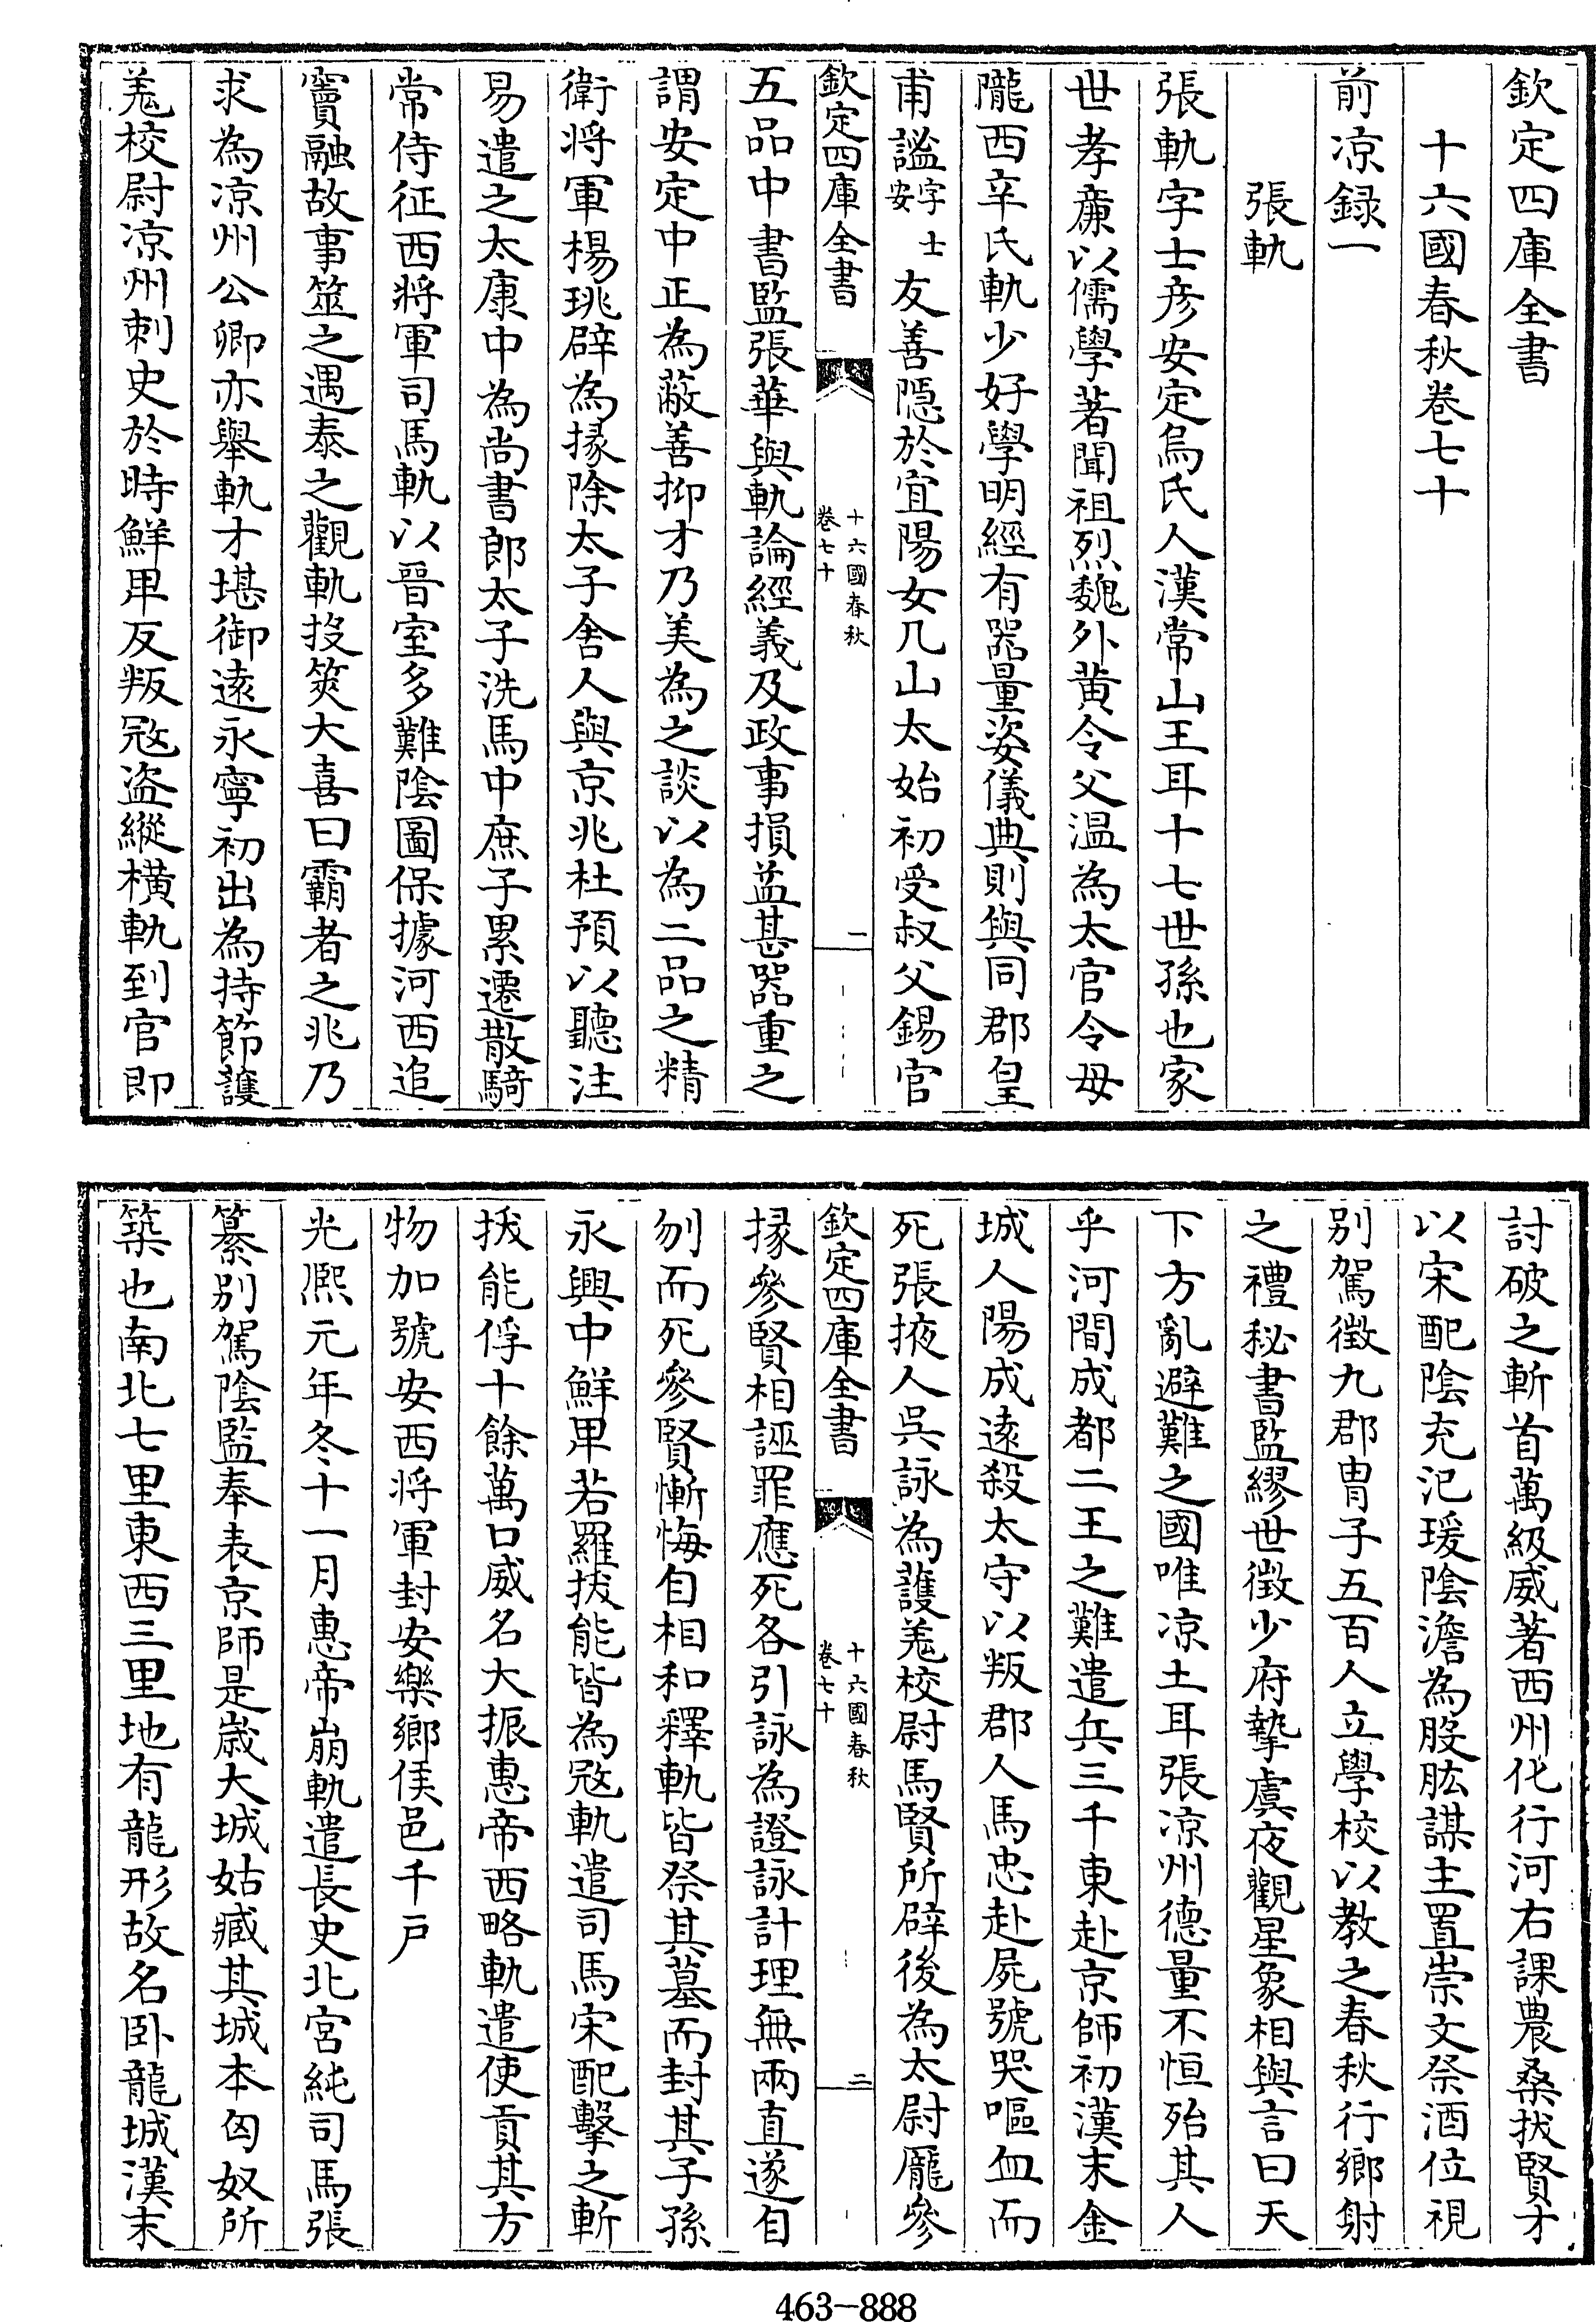 欽定四庫全書
十六國春秋卷七十
前凉録一
張軌
張軌字士彥安定烏氏人漢常山王耳十七世孫也家
世孝廉以儒學著聞祖烈魏外黃令父温為太官令母
隴西辛氏軌少好學明經有器量姿儀典則與同郡皇
甫謐字士安友善隱於宜陽女几山太始初受叔父錫官
欽定四庫全書
十六國春秋
卷七十
一
五品中書監張華與軌論經義及政事損益甚器重之
謂安定中正為蔽善抑才乃美為之談以為二品之精
衛將軍楊珧辟為掾除太子舍人與京兆杜預以聽注
易遣之太康中為尚書郎太子洗馬中庶子累遷散騎
常侍征西將軍司馬軌以晉室多難陰圖保據河西追
竇融故事筮之遇泰之觀軌投筴大喜曰霸者之兆乃
求為凉州公卿亦舉軌才堪御遠永寧初出為持節護
羗校尉凉州刺史於時鮮卑反叛冦盗縱橫軌到官即
討破之斬首萬級威著西州化行河右課農桑拔賢才
以宋配陰充氾瑗陰澹為股肱謀主置崇文祭酒位視
别駕徵九郡胄子五百人立學校以教之春秋行鄉射
之禮秘書監繆世徵少府摯虞夜觀星象相與言曰天
下方亂避難之國唯凉土耳張凉州德量不恒殆其人
乎河間成都二王之難遣兵三千東赴京師初漢末金
城人陽成遠殺太守以叛郡人馬忠赴屍號哭嘔血而
死張掖人吳詠為護羗校尉馬賢所辟後為太尉龎參
欽定四庫全書
十六國春秋
卷七十
二
掾參賢相誣罪應死各引詠為證詠計理無兩直遂自
刎而死參賢慚悔自相和釋軌皆祭其墓而封其子孫
永興中鮮卑若羅拔能皆為冦軌遣司馬宋配擊之斬
拔能俘十餘萬口威名大振惠帝西略軌遣使貢其方
物加號安西將軍封安樂鄉侯邑千戶
光熙元年冬十一月惠帝崩軌遣長史北宫純司馬張
纂别駕陰監奉表京師是歲大城姑臧其城本匈奴所
築也南北七里東西三里地有龍形故名卧龍城漢末
463-888